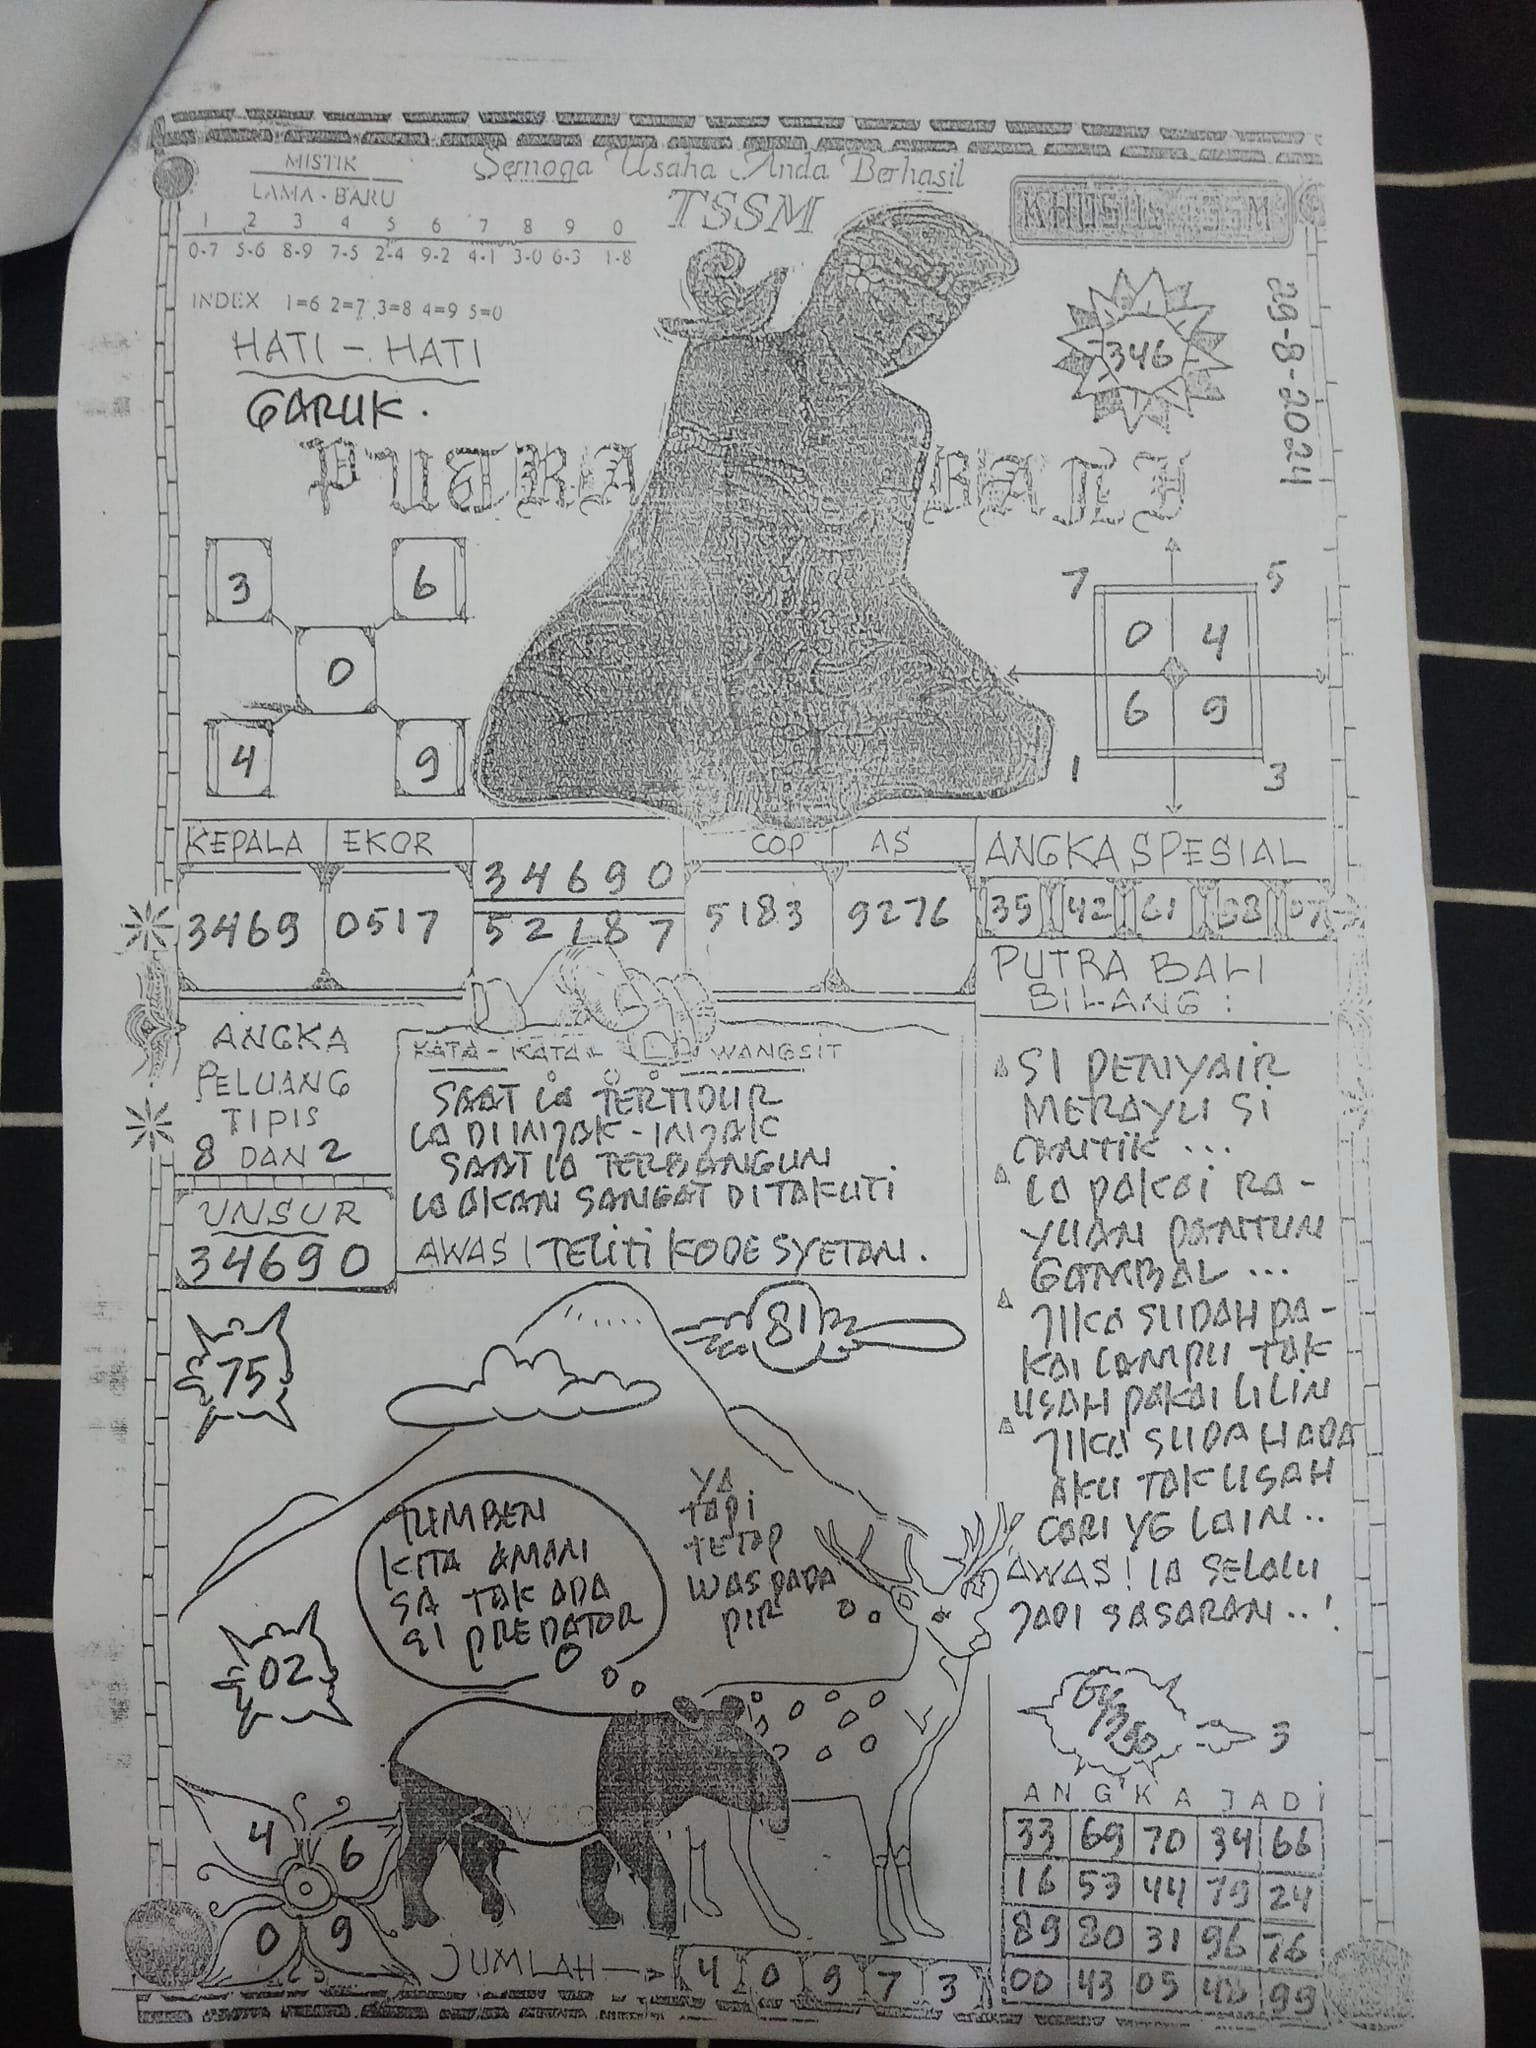 MISTIK
LAMA - BARU
1 2 3 4 5 6 7 8 9 0
0-7 5-6 8-9 7-5 2-4 9-2 4-1 3-0 6-3 1-8
INDEX 1=6 2=7 3=8 4=9 5=0
Semoga Usaha Anda Berhasil
TSSM
KHUSUS TSSM
HATI - HATI
GARUK.
346
29-8-2024
PUTRA BALI
3 6
0
4 9
7 5
0 4
6 9
1 3
KEPALA EKOR COP AS
3469 0517
34690
52187
5183 9276
ANGKA SPESIAL
35 42 61
ANGKA
PELUANG
TIPIS
8 DAN 2
UNSUR
34690
KATA - KATA WANGSIT
SAAT IA TERTIDUR
IA DI INJAK - INJAK
SAAT IA TERBANGUN
IA AKAN SANGAT DITAKUTI
AWAS! TELITI KODE SYETAN.
PUTRA BALI
BILANG :
SI PENYAIR
MERAYU SI
CANTIK ...
IA PAKAI RA -
YUAN PANTUN
GOMBAL ...
JIKA SUDAH PA -
KAI LAMPU TAK
USAH PAKAI LILIN
JIKA SUDAH ADA
AKU TAK USAH
CARI YG LAIN ..
AWAS! IA SELALU
JADI SASARAN ..!
75
81
02
TUMBEN
KITA AMAN
SA TAK ADA
SI PREDATOR
YA
TAPI
TETAP
WASPADA
PIR
3
4 6
0 9
JUMLAH → 4 0 9 7 3
ANGKA JADI
33 69 70 34 66
16 53 44 79 24
89 80 31 96 76
00 43 05 48 99